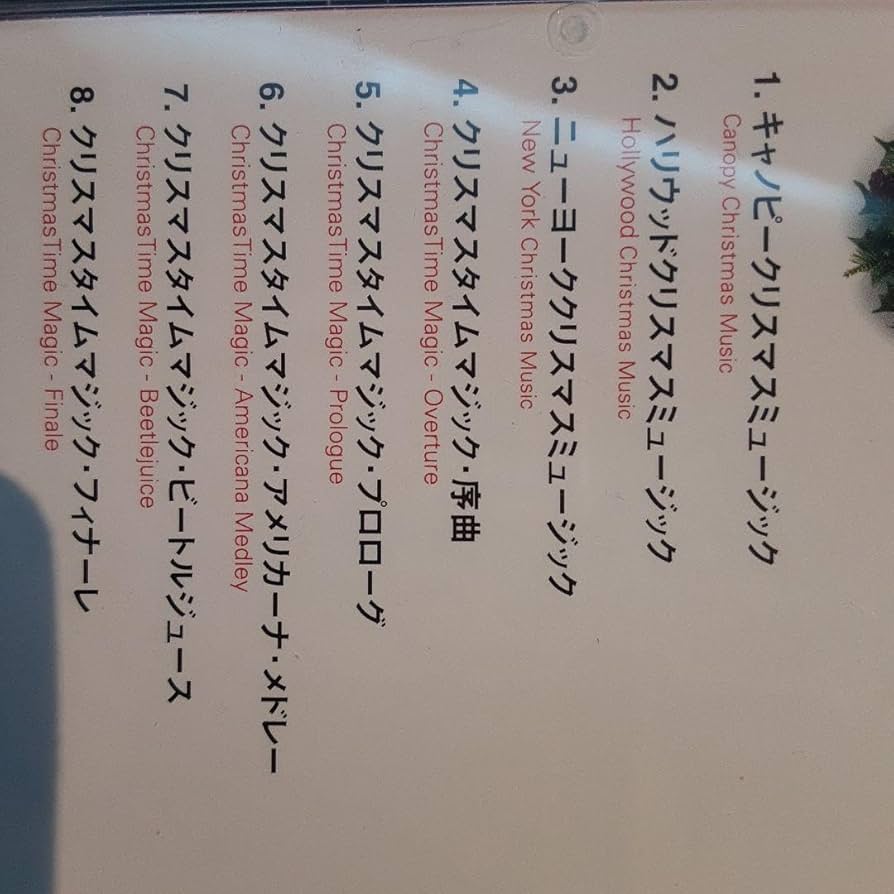 1. キャノピークリスマスミュージック
Canopy Christmas Music
2. ハリウッドクリスマスミュージック
Hollywood Christmas Music
3. ニューヨーククリスマスミュージック
New York Christmas Music
4. クリスマスタイムマジック・序曲
ChristmasTime Magic - Overture
5. クリスマスタイムマジック・プロローグ
ChristmasTime Magic - Prologue
6. クリスマスタイムマジック・アメリカーナ・メドレー
ChristmasTime Magic - Americana Medley
7. クリスマスタイムマジック・ビートルジュース
ChristmasTime Magic - Beetlejuice
8. クリスマスタイムマジック・フィナーレ
ChristmasTime Magic - Finale